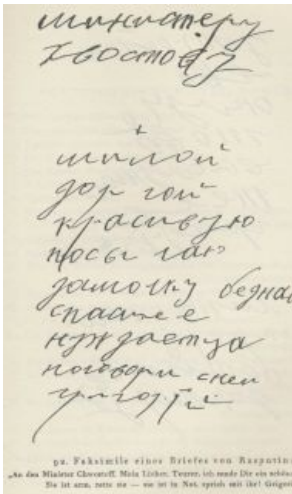 министеру
хвостову
+
милой
дор гой
красивую
посы лаю
дамочку бедная
спаси е е
нуждаетца
поговори снеи
григорий
Faksimile eines Briefes von Rasputin
„An den Minister Chwostoff. Mein Lieber, Teurer, ich sende Dir ein schöne
Sie ist arm, rette sie — sie ist in Not, sprich mit ihr! Grigori